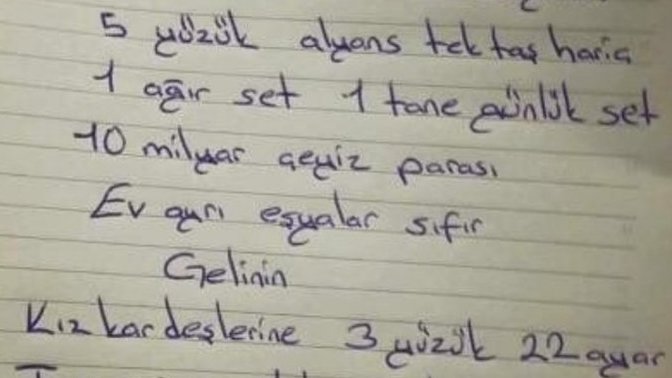 5 yüzük alyans tektaş hariç
1 ağır set 1 tane günlük set
10 milyar çeyiz parası
Ev ayrı eşyalar sıfır
Gelinin
Kız kardeşlerine 3 yüzük 22 ayar